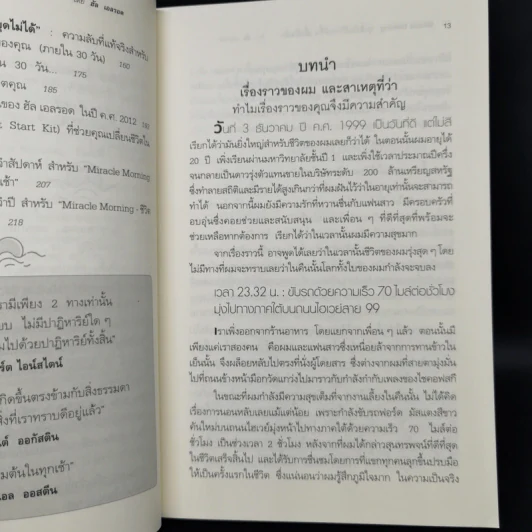 โดย ฮัล เอลรอด
พูดไม่ได้” : ความลับที่แท้จริงสำหรับ
ของคุณ (ภายใน 30 วัน) 160
30 วัน... 175
ตคุณ 185
ของ ฮัล เอลรอด ในปี ค.ศ. 2012
Start Kit) ที่ช่วยคุณเปลี่ยนชีวิตใน
จำสัปดาห์ สำหรับ “Miracle Morning
เช้า” 207
จำปี สำหรับ “Miracle Morning - ชีวิต
218
รามีเพียง 2 ทางเท่านั้น
บบ ไม่มีปาฏิหาริย์ใด ๆ
มไปด้วยปาฏิหาริย์ทั้งสิ้น”
ร์ต ไอน์สไตน์
กิดขึ้นตรงข้ามกับสิ่งธรรมดา
สิ่งที่เราทราบดีอยู่แล้ว”
นต์ ออกัสติน
มต้นในทุกเช้า”
เอล ออสตีน
13
บทนำ
เรื่องราวของผม และสาเหตุที่ว่า
ทำไมเรื่องราวของคุณจึงมีความสำคัญ
วันที่ 3 ธันวาคม ปี ค.ศ. 1999 เป็นวันที่ดี แต่ไม่สิ
เรียกได้ว่ามันยิ่งใหญ่สำหรับชีวิตของผมเลยก็ว่าได้ ในตอนนั้นผมอายุได้
20 ปี เพิ่งเรียนผ่านมหาวิทยาลัยชั้นปี 1 และเพิ่งใช้เวลาประมาณปีครึ่ง
จนกลายเป็นดาวรุ่งตัวแทนขายในบริษัทระดับ 200 ล้านเหรียญสหรัฐ
ซึ่งทำลายสถิติและมีรายได้สูงเกินกว่าที่ผมฝันไว้ว่าในอายุเท่านั้นจะสามารถ
ทำได้ นอกจากนี้ผมยังมีความรักที่หวานชื่นกับแฟนสาว มีครอบครัวที่
อบอุ่นซึ่งคอยช่วยและสนับสนุน และเพื่อน ๆ ที่ดีที่สุดที่พร้อมจะ
ช่วยเหลือหากต้องการ เรียกได้ว่าในเวลานั้นผมมีความสุขมาก
จากเรื่องราวนี้ อาจพูดได้เลยว่าในเวลานั้นชีวิตของผมรุ่งสุด ๆ โดย
ไม่มีทางที่ผมจะทราบเลยว่าในคืนนั้นโลกทั้งใบของผมกำลังจะจบลง
เวลา 23.32 น. : ขับรถด้วยความเร็ว 70 ไมล์ต่อชั่วโมง
มุ่งไปทางภาคใต้บนถนนไฮเวย์สาย 99
เราเพิ่งออกจากร้านอาหาร โดยแยกจากเพื่อน ๆ แล้ว ตอนนั้นมี
เพียงแค่เราสองคน คือผมและแฟนสาวซึ่งเหนื่อยล้าจากการทานข้าวใน
เย็นนั้น จึงผล็อยหลับไปตรงที่นั่งผู้โดยสาร ซึ่งต่างจากผมที่สายตามุ่งมั่น
ไปที่ถนนข้างหน้า
ในขณะที่ผมกำลังมีความสุขเต็มที่จากงานเลี้ยงในคืนนั้น ไม่ได้คิด
เรื่องการนอนหลับเลยแม้แต่น้อย เพราะกำลังขับรถฟอร์ด มัสแตงสีขาว
คันใหม่บนถนนไฮเวย์มุ่งหน้าไปทางภาคใต้ด้วยความเร็ว 70 ไมล์ต่อ
ชั่วโมง เป็นช่วงเวลา 2 ชั่วโมง หลังจากที่ผมได้กล่าวสุนทรพจน์ที่ดีที่สุด
ในชีวิตเสร็จสิ้นไป และได้รับการชื่นชมโดยการที่แขกทุกคนลุกขึ้นปรบมือ
ให้เป็นครั้งแรกในชีวิต ซึ่งแน่นอนว่าผมรู้สึกภูมิใจมาก ในความเป็นจริง